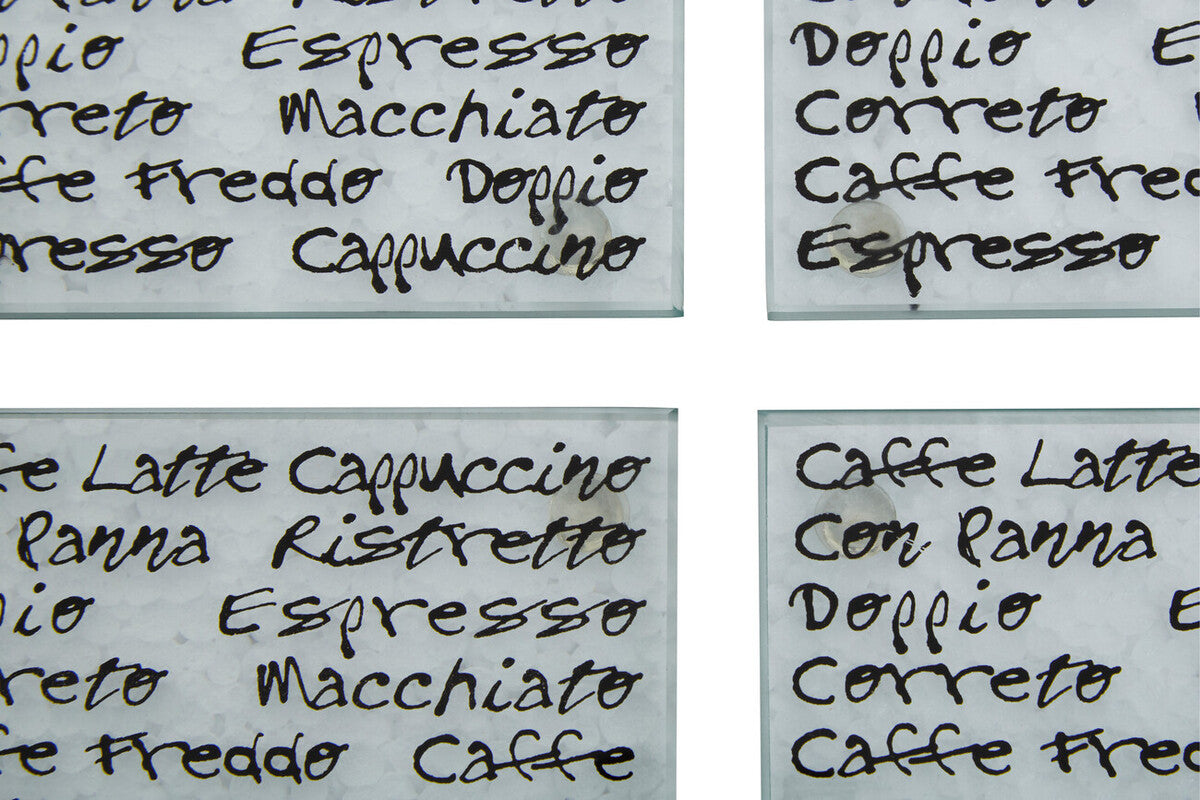 Panna Ristretto
ppio Espresso
rreto Macchiato
ffe Freddo Doppio
presso Cappuccino
Doppio E
Correto
Caffe Fred
Espresso
fe Latte Cappuccino
Panna Ristretto
pio Espresso
reto Macchiato
fe Freddo Caffe
Caffe Latte
Con Panna
Doppio E
Correto
Caffe Fred